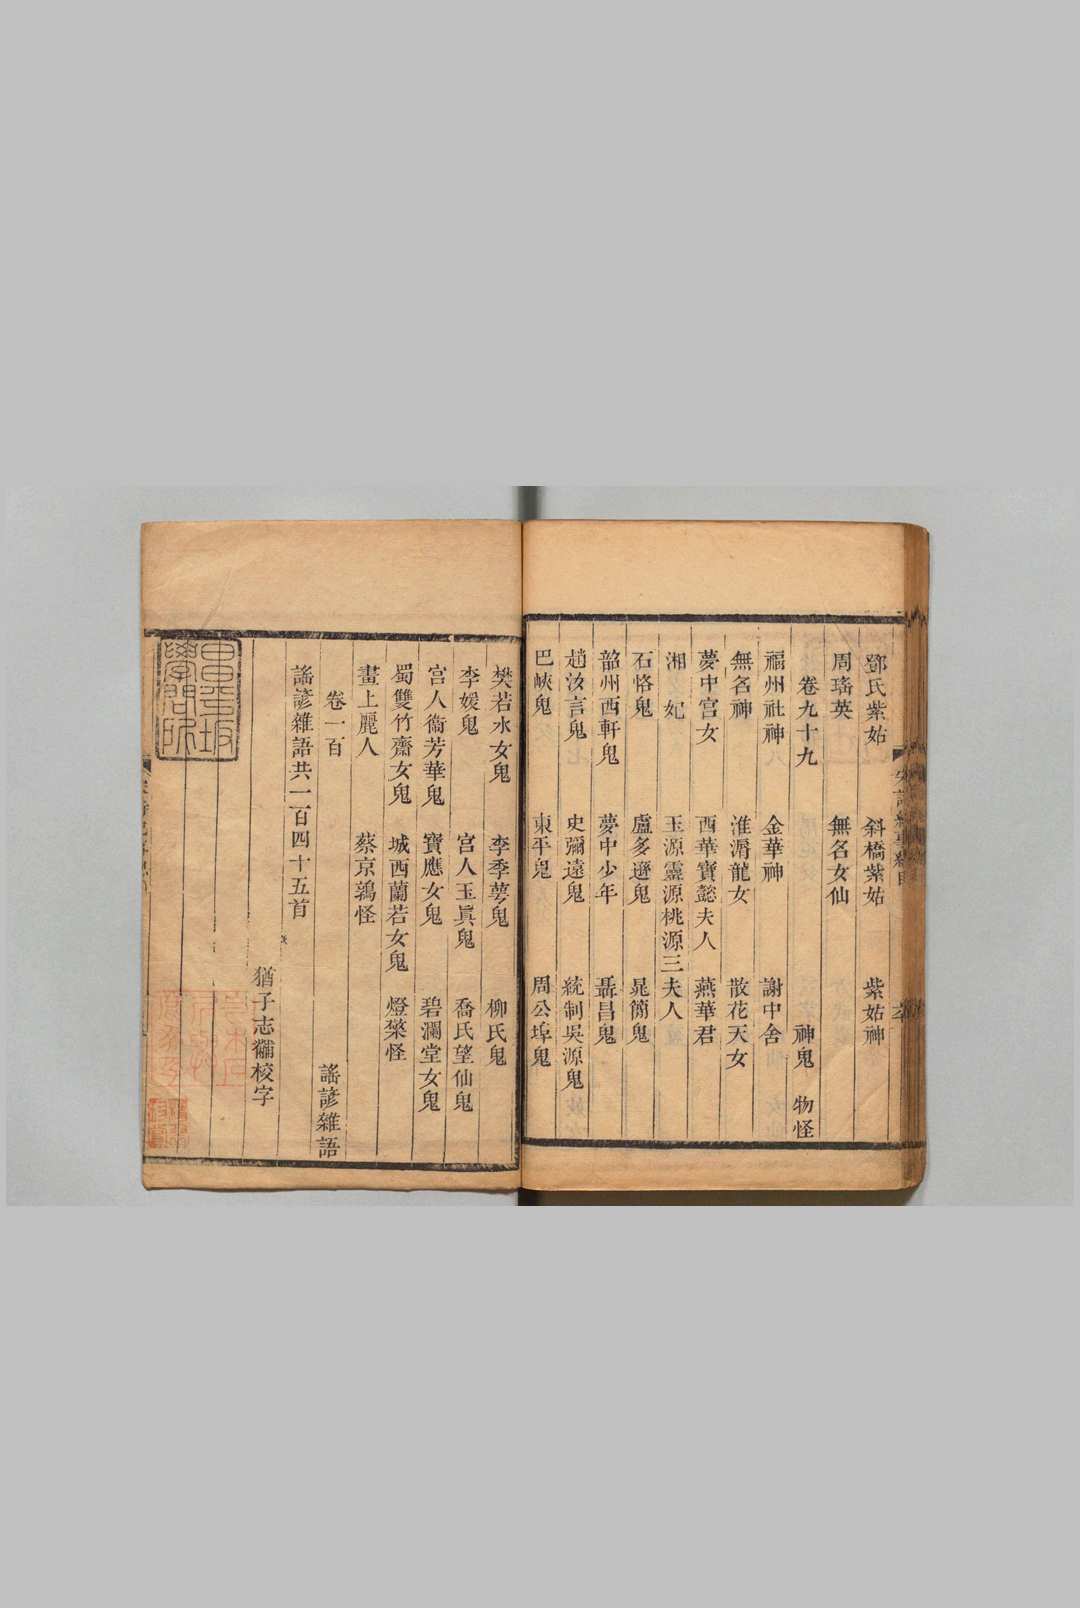 鄧氏紫姑 斜橋紫姑 紫姑神
周瑤英 無名女仙
卷九十九 神鬼 物怪
福州社神 金華神 謝中舍
無名神 淮渦龍女 散花天女
夢中宮女 西華寶懿夫人 燕華君
湘妃 玉源靈源桃源三夫人
石恪鬼 盧多遜鬼 晁簡鬼
韶州西軒鬼 夢中少年 聶昌鬼
趙汝言鬼 史彌遠鬼 統制吳源鬼
巴峽鬼 東平鬼 周公埠鬼
樊若水女鬼 李季蕚鬼 柳氏鬼
李媛鬼 宮人玉眞鬼 喬氏望仙鬼
宮人衞芳華鬼 寶應女鬼 碧瀾堂女鬼
蜀雙竹齋女鬼 城西蘭若女鬼 燈檠怪
畫上麗人 蔡京鶉怪
卷一百 謠諺雜語
謠諺雜語共一百四十五首
猶子志黼校字
昌平坂
學問所